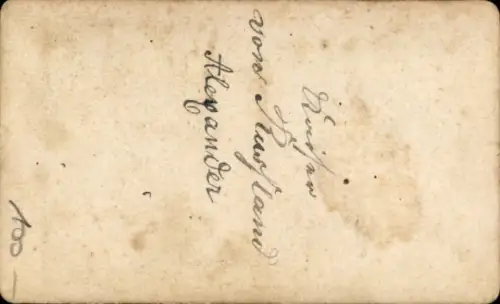 Kaiser
von Rußland
Alexander
100-